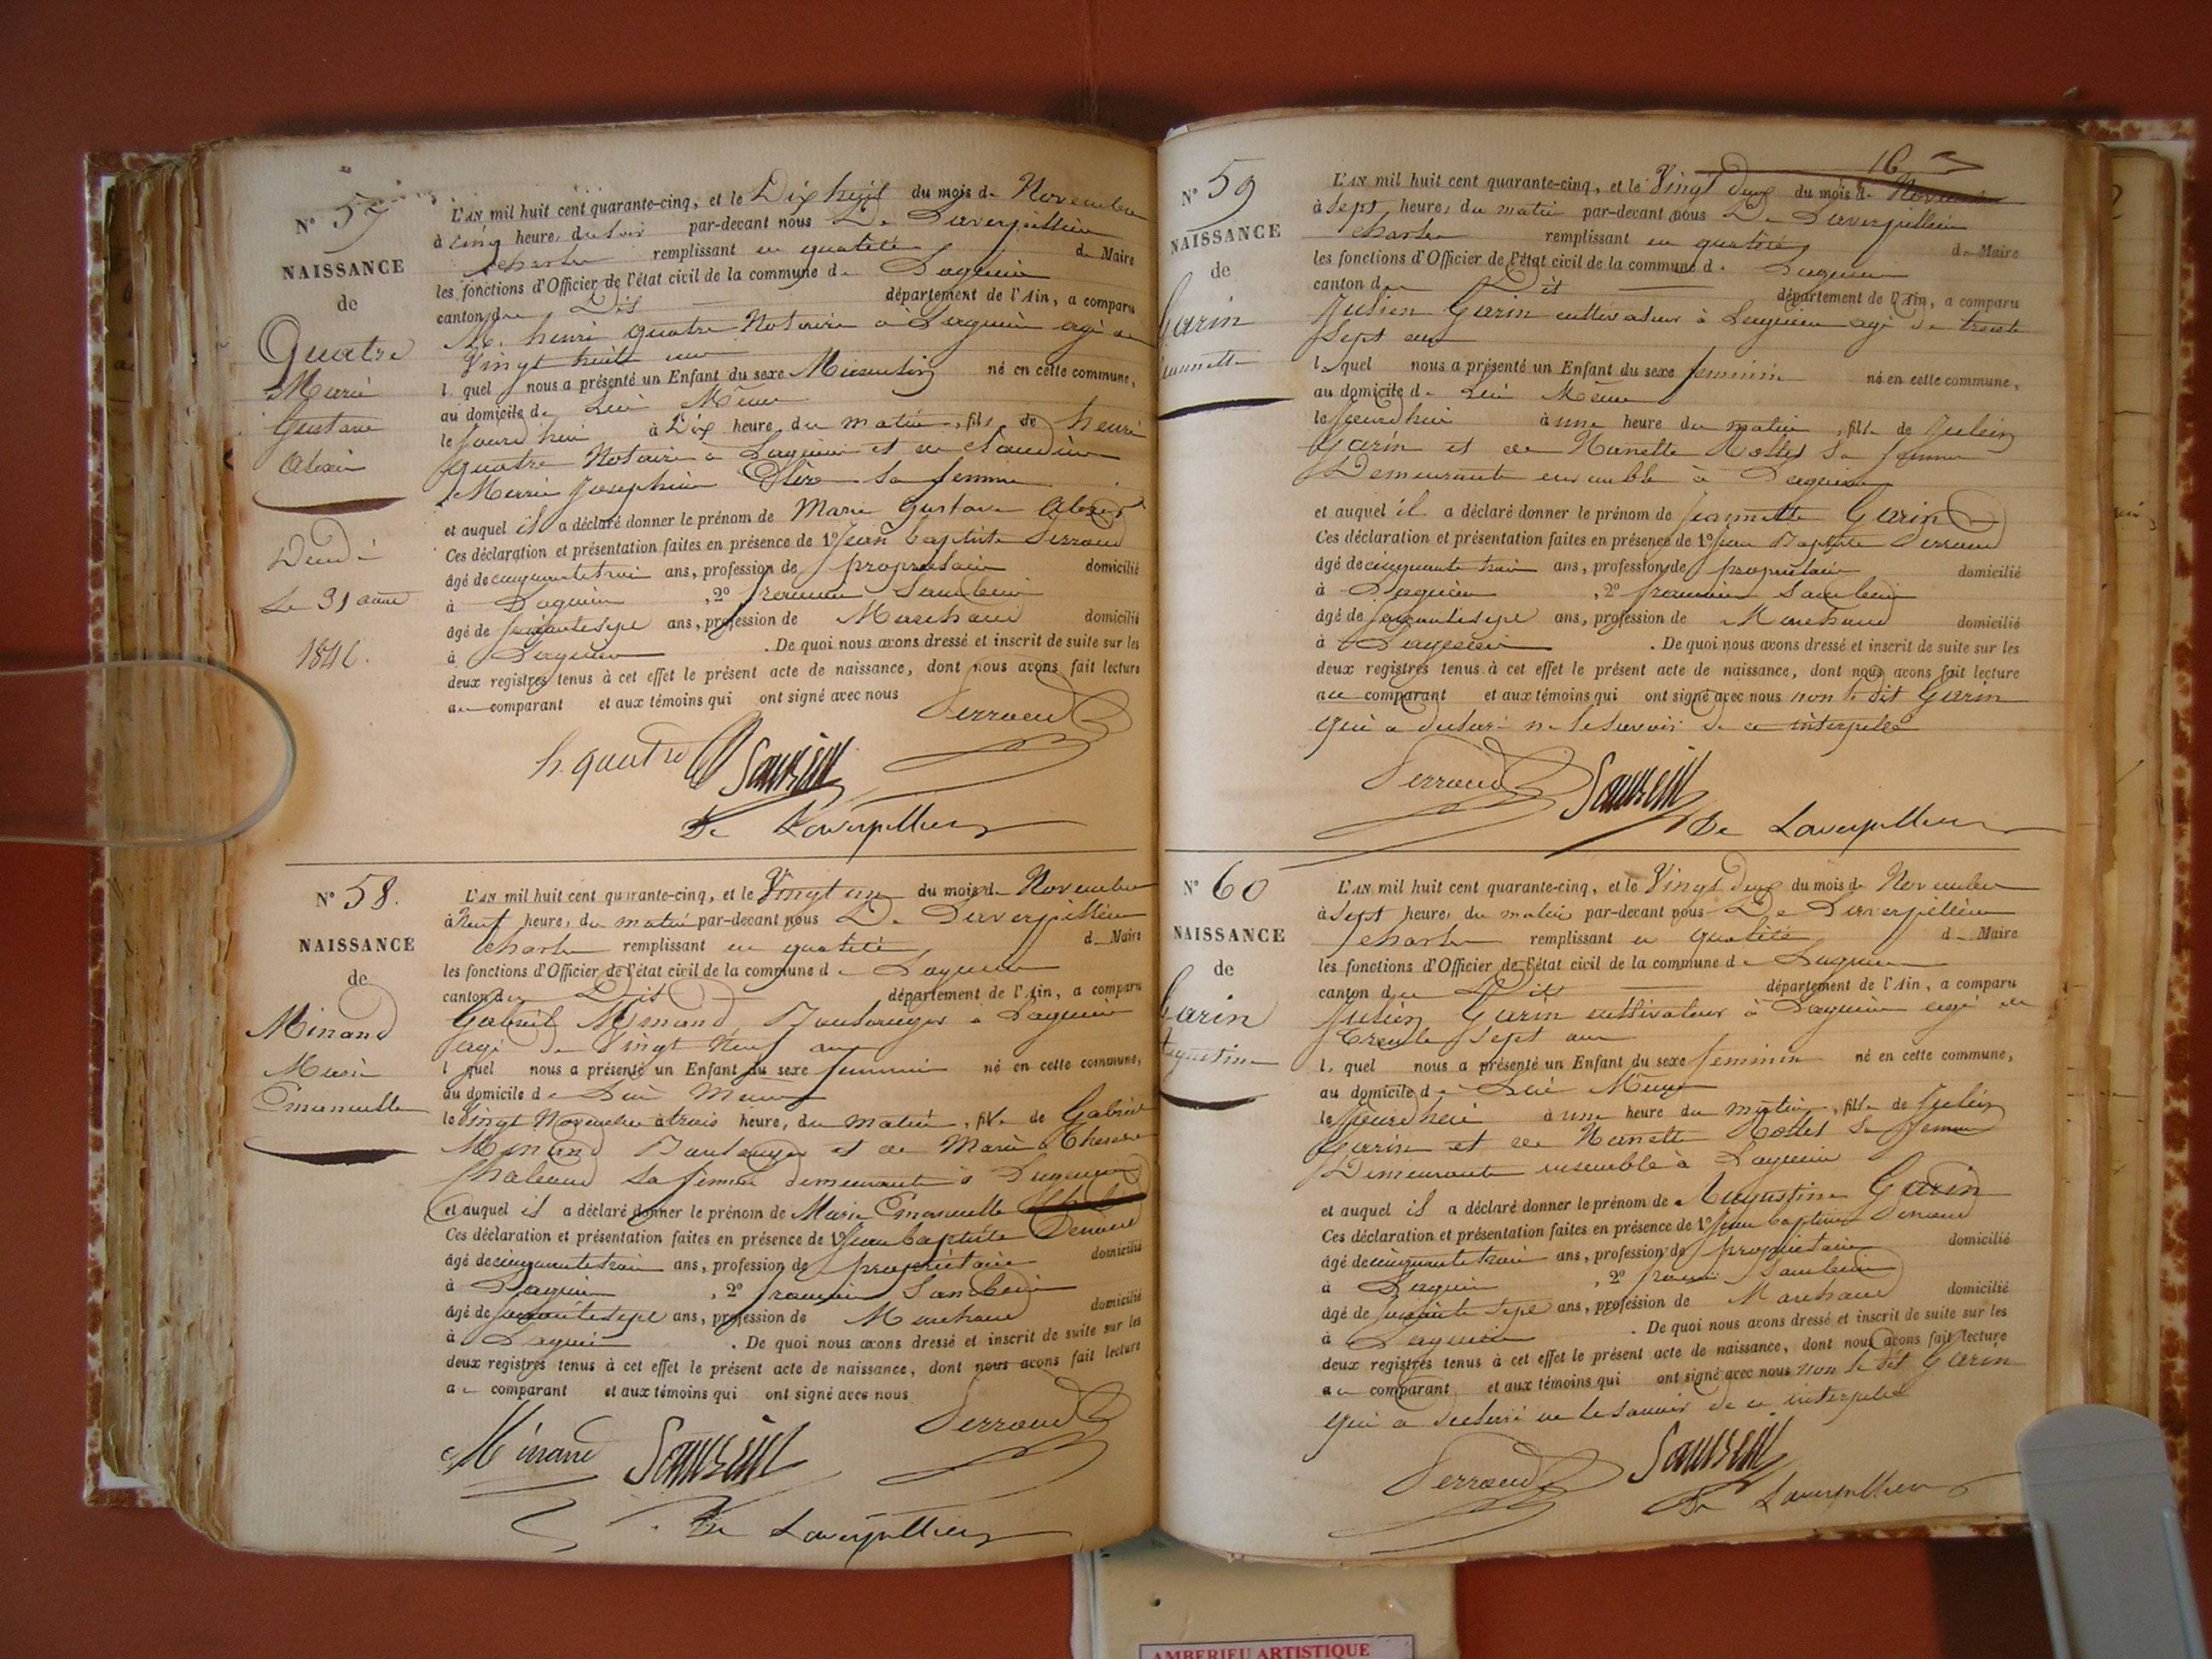 N° 57
NAISSANCE
de
Quatre
Marie
Gustave
Alexis
Décédé
Le 31 aout
1846.
L'AN mil huit cent quarante-cinq, et le Dix huit du mois de Novembre
à cinq heures du soir par-devant nous De Laverpillière
Charles remplissant en qualité de Maire
les fonctions d'Officier de l'état civil de la commune de Lagnieu
canton du Dit département de l'Ain, a comparu
M. henri quatre Notaire à Lagnieu agé de
Vingt huit ans
lequel nous a présenté un Enfant du sexe Masculin né en cette commune,
au domicile de Lui Même
le jourd'hui à Dix heures du matin, fils de henri
quatre Notaire à Lagnieu et de Claudine
Marie Josephine sa femme
et auquel il a déclaré donner le prénom de Marie Gustave Alexis
Ces déclaration et présentation faites en présence de 1° Jean baptiste Perroud
âgé de cinquante trois ans, profession de propriétaire domicilié
à Lagnieu, 2° françois
âgé de ans, profession de Marchand domicilié
à Lagnieu. De quoi nous avons dressé et inscrit de suite sur les
deux registres tenus à cet effet le présent acte de naissance, dont nous avons fait lecture
au comparant et aux témoins qui ont signé avec nous
Perroud
h. quatre
De Laverpilliere
N° 58.
NAISSANCE
de
Minand
Marie
Emanuelle
L'AN mil huit cent quarante-cinq, et le Vingt un du mois de Novembre
à Neuf heures du matin par-devant nous De Laverpillière
Charles remplissant en qualité de Maire
les fonctions d'Officier de l'état civil de la commune de Lagnieu
canton du Dit département de l'Ain, a comparu
Gabriel Minand Boulanger à Lagnieu
agé de Vingt Neuf ans
lequel nous a présenté un Enfant du sexe feminin né en cette commune,
au domicile de Lui Même
le Vingt Novembre à trois heures du matin, fille de Gabriel
Minand Boulanger et de Marie Therese
sa femme demeurants à Lagnieu
et auquel il a déclaré donner le prénom de Marie Emanuelle
Ces déclaration et présentation faites en présence de 1° Jean baptiste Perroud
âgé de cinquante trois ans, profession de propriétaire domicilié
à Lagnieu, 2° françois
âgé de ans, profession de Marchand domicilié
à Lagnieu. De quoi nous avons dressé et inscrit de suite sur les
deux registres tenus à cet effet le présent acte de naissance, dont nous avons fait lecture
au comparant et aux témoins qui ont signé avec nous
Perroud
Minand
De Laverpilliere
16
N° 59
NAISSANCE
de
Garin
Jeannette
L'AN mil huit cent quarante-cinq, et le Vingt Deux du mois de Novembre
à Sept heures du matin par-devant nous De Laverpillière
Charles remplissant en qualité de Maire
les fonctions d'Officier de l'état civil de la commune de Lagnieu
canton du Dit département de l'Ain, a comparu
Julien Garin cultivateur à Lagnieu agé de trente
Sept ans
lequel nous a présenté un Enfant du sexe feminin né en cette commune,
au domicile de Lui Même
le jourd'hui à une heure du matin, fille de Julien
Garin et de Nanette Rollet Sa femme
Demeurants ensemble à Lagnieu
et auquel il a déclaré donner le prénom de Jeannette Garin
Ces déclaration et présentation faites en présence de 1° Jean Baptiste Perroud
âgé de cinquante trois ans, profession de propriétaire domicilié
à Lagnieu, 2° françois
âgé de ans, profession de Marchand domicilié
à Lagnieu. De quoi nous avons dressé et inscrit de suite sur les
deux registres tenus à cet effet le présent acte de naissance, dont nous avons fait lecture
au comparant et aux témoins qui ont signé avec nous non le dit Garin
qui a déclaré ne le savoir de ce interpellé
Perroud
De Laverpilliere
N° 60
NAISSANCE
de
Garin
Augustine
L'AN mil huit cent quarante-cinq, et le Vingt Deux du mois de Novembre
à Sept heures du matin par-devant nous De Laverpillière
Charles remplissant en qualité de Maire
les fonctions d'Officier de l'état civil de la commune de Lagnieu
canton du Dit département de l'Ain, a comparu
Julien Garin cultivateur à Lagnieu agé de
trente Sept ans
lequel nous a présenté un Enfant du sexe feminin né en cette commune,
au domicile de Lui Même
le jourd'hui à une heure du matin, fille de Julien
Garin et de Nanette Rollet Sa femme
Demeurants ensemble à Lagnieu
et auquel il a déclaré donner le prénom de Augustine Garin
Ces déclaration et présentation faites en présence de 1° Jean baptiste Perroud
âgé de cinquante trois ans, profession de propriétaire domicilié
à Lagnieu, 2°
âgé de ans, profession de Marchand domicilié
à Lagnieu. De quoi nous avons dressé et inscrit de suite sur les
deux registres tenus à cet effet le présent acte de naissance, dont nous avons fait lecture
au comparant et aux témoins qui ont signé avec nous non le dit Garin
qui a déclaré ne le savoir de ce interpellé
Perroud
De Laverpilliere
AMBERIEU ARTISTIQUE